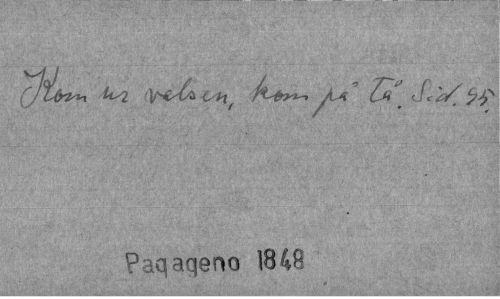 Kom ur valsen, kom på tå. Sid. 95.
Paqageno 1848